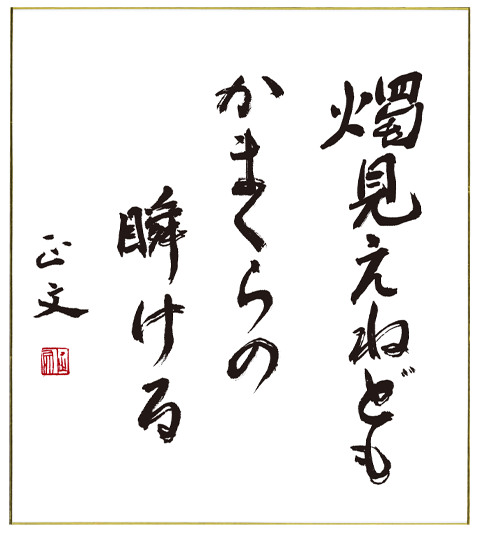 燭見えねども
かまくらの
瞬ける
正文